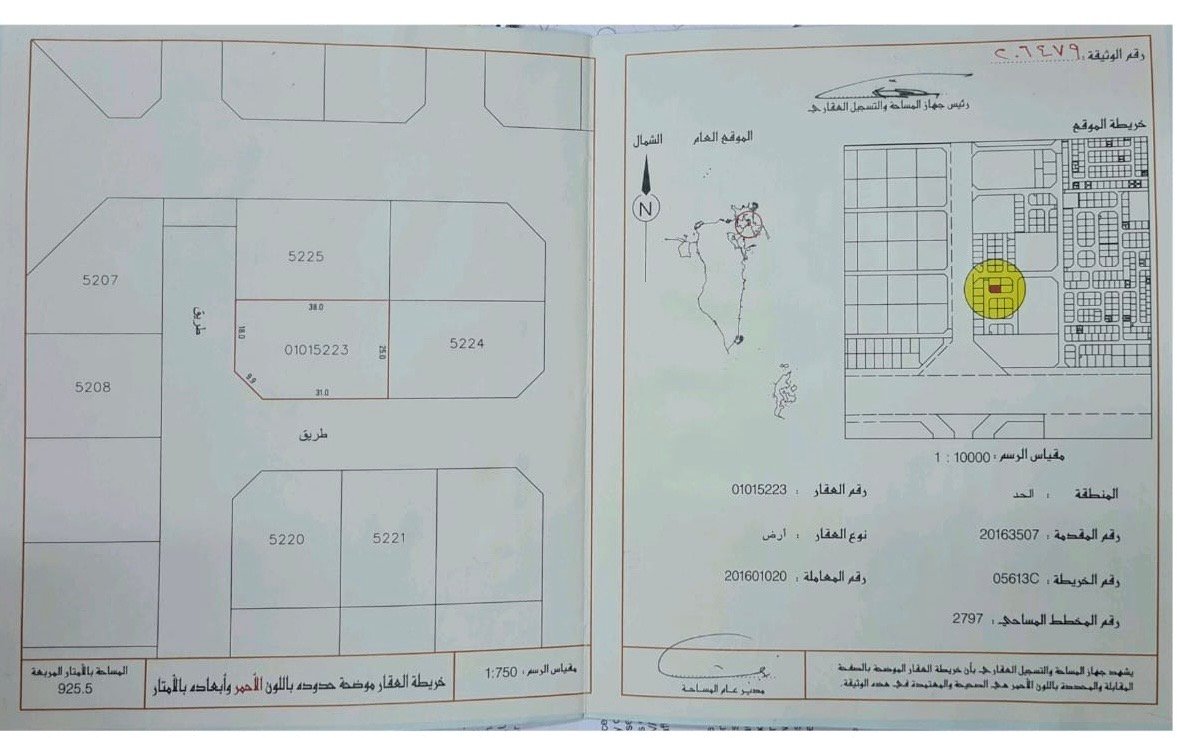 رقم الوثيقة : ٢٠٦٤٧٩
رئيس جهاز المساحة والتسجيل العقاري
خريطة الموقع
الموقع العام
الشمال
N
مقياس الرسم : 10000 : 1
المنطقة : الحد
رقم العقار : 01015223
رقم المقدمة : 20163507
نوع العقار : أرض
رقم الخريطة : 05613C
رقم المعاملة : 201601020
رقم المخطط المساحي : 2797
مدير عام المساحة
يشهد جهاز المساحة والتسجيل العقاري بأن خريطة العقار الموضحة بالصفحة
المقابلة والمحددة باللون الأحمر هي الصحيحة والمعتمدة في هذه الوثيقة.
5207
5225
طريق
38.0
18.0
01015223
25.0
5224
9.9
31.0
5208
طريق
5220
5221
مقياس الرسم : 1:750
خريطة العقار موضحة حدوده باللون الأحمر وأبعاده بالأمتار
المساحة بالأمتار المربعة
925.5